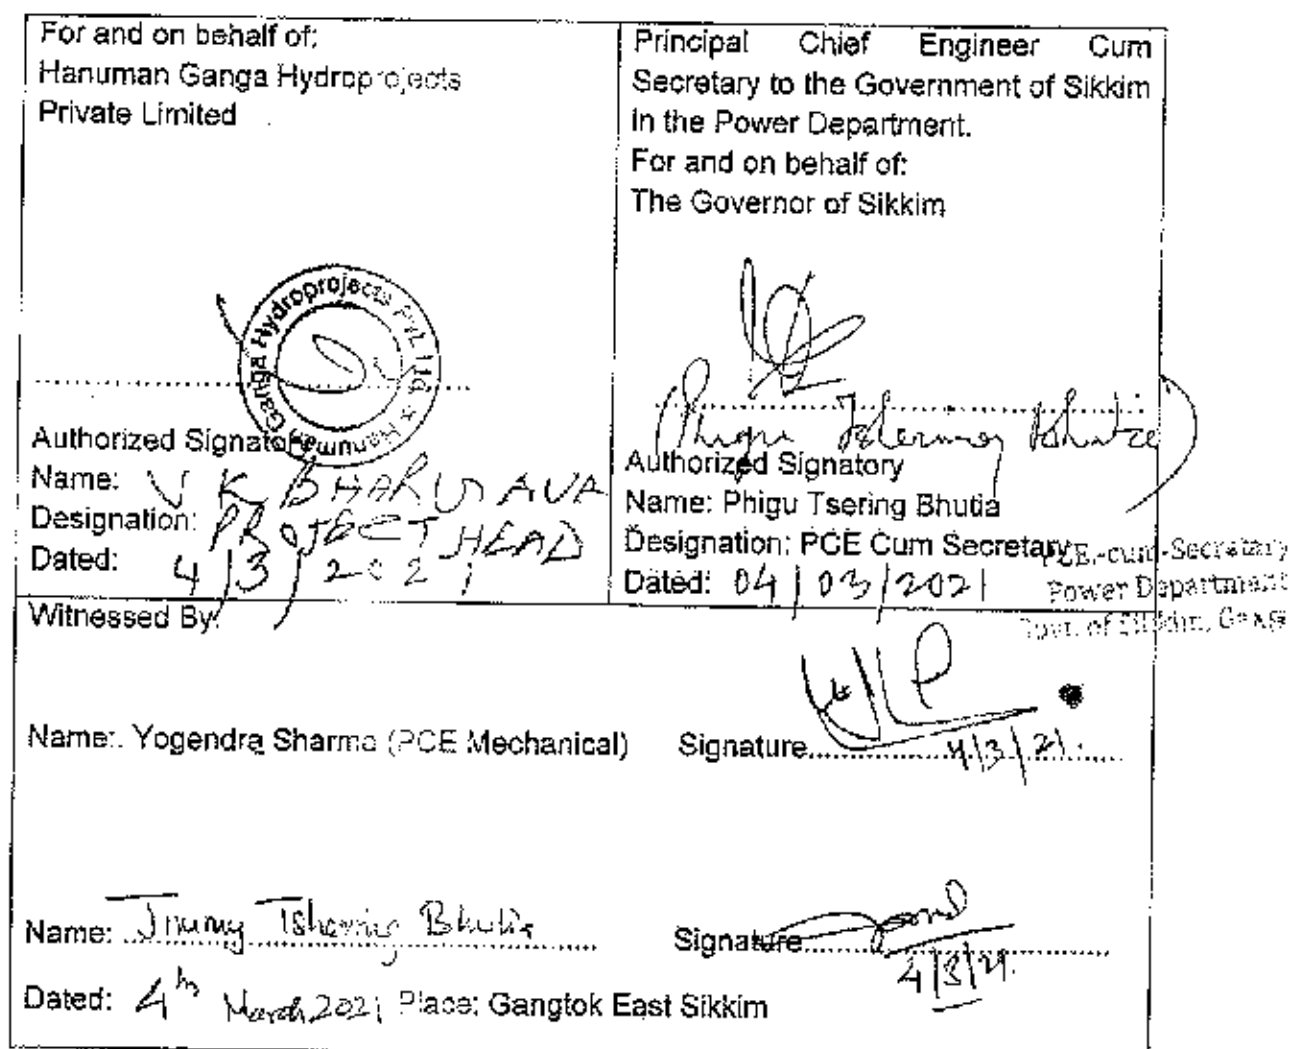 For and on behalf of:
Hanuman Ganga Hydroprojects
Private Limited
Hanuman Ganga Hydroprojects Pvt. Ltd.
Authorized Signatory
Name: V K BHARGAVA
Designation: PROJECT HEAD
Dated: 4/3/2021
Principal Chief Engineer Cum
Secretary to the Government of Sikkim
in the Power Department.
For and on behalf of:
The Governor of Sikkim
(Phigu Tshering Bhutia)
Authorized Signatory
Name: Phigu Tsering Bhutia
Designation: PCE Cum Secretary
Dated: 04/03/2021
PCE-cum-Secretary
Power Department
Govt. of Sikkim,
Witnessed By:
Name:. Yogendra Sharma (PCE Mechanical) Signature
4/3/21.
Name: Jimmy Tshering Bhutia Signature
4/3/21.
Dated: 4th March,2021 Place: Gangtok East Sikkim